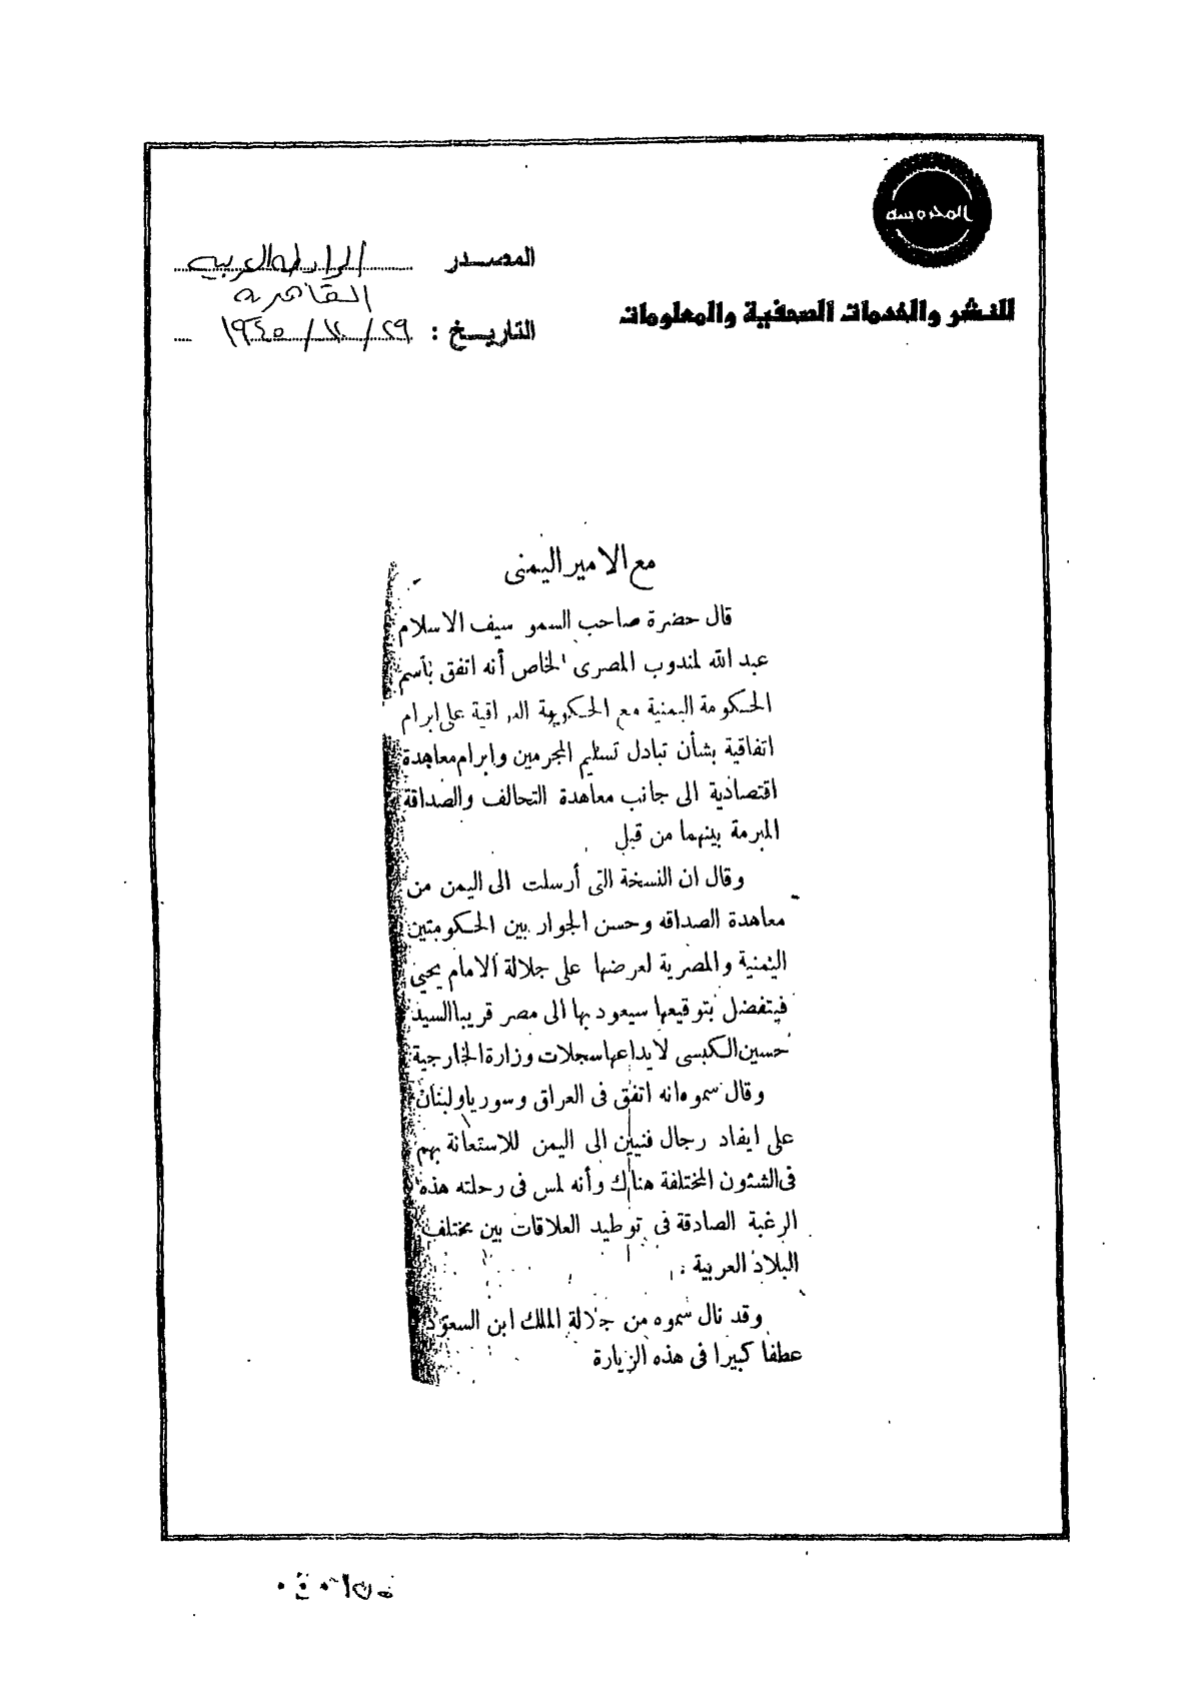 المحروسه
للنشر والخدمات الصحفية والمعلومات
المصدر الرابطه العربيه
القاهريه
التاريخ : ١٩٤٥/١٠/٢٩
مع الامير اليمنى
قال حضرة صاحب السمو سيف الاسلام
عبد الله لمندوب المصرى الخاص أنه اتفق بأسم
الحكومة اليمنية مع الحكومة العراقية على ابرام
اتفاقية بشأن تبادل تسليم المجرمين وابرام معاهدة
اقتصادية الى جانب معاهدة التحالف والصداقة
المبرمة بينهما من قبل
وقال ان النسخة التى أرسلت الى اليمن من
معاهدة الصداقه وحسن الجوار بين الحكومتين
اليمنية والمصرية لعرضها على جلالة الامام يحيى
فيتفضل بتوقيعها سيعود بها الى مصر قريبا السيد
حسين الكبسى لايداعها سجلات وزارة الخارجية
وقال سموه انه اتفق فى العراق وسوريا ولبنان
على ايفاد رجال فنيين الى اليمن للاستعانة بهم
فى الشئون المختلفة هناك وأنه لمس فى رحلته هذه
الرغبة الصادقة فى توطيد العلاقات بين مختلف
البلاد العربية .
وقد نال سموه من جلالة الملك ابن السعود
عطفا كبيرا فى هذه الزيارة